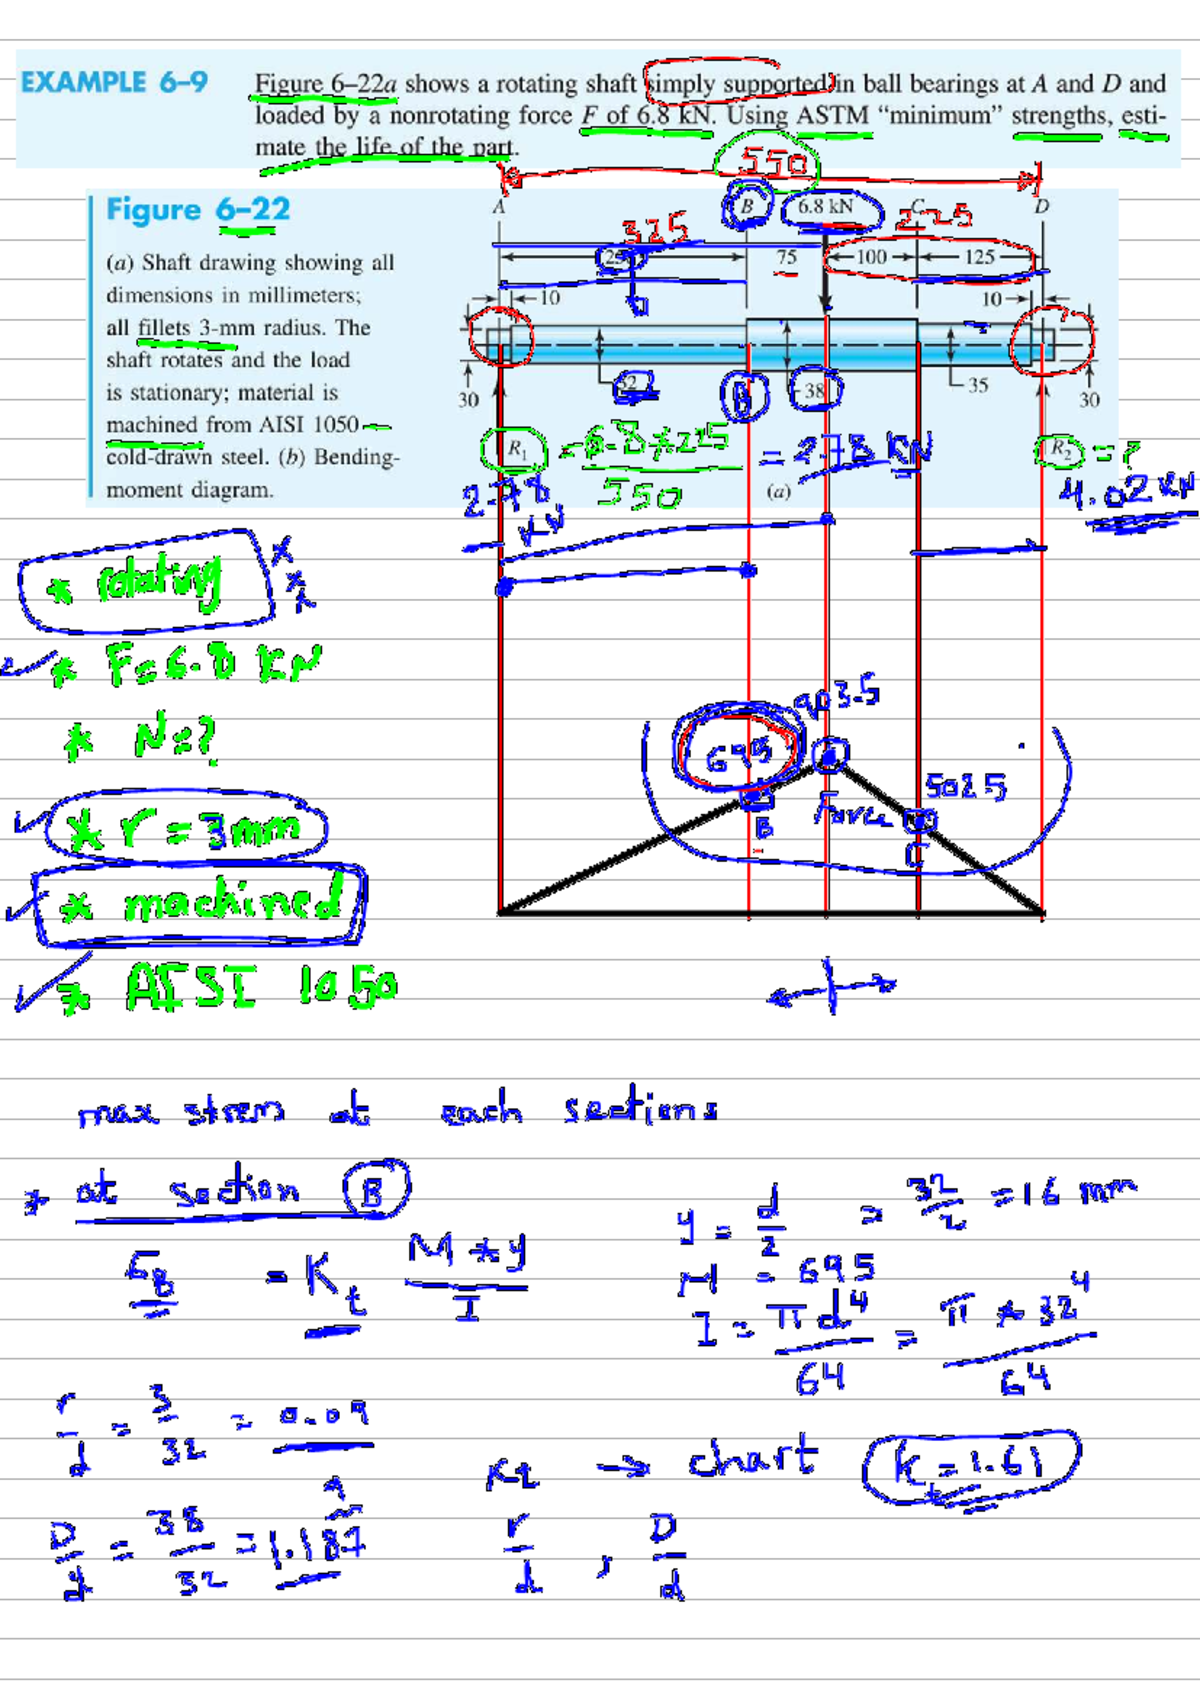 EXAMPLE 6–9 Figure 6–22a shows a rotating shaft simply supported in ball bearings at A and D and
loaded by a nonrotating force F of 6.8 kN. Using ASTM “minimum” strengths, esti-
mate the life of the part.
550
Figure 6–22
A B 6.8 kN C D
325 225
(a) Shaft drawing showing all
dimensions in millimeters;
all fillets 3-mm radius. The
shaft rotates and the load
is stationary; material is
machined from AISI 1050
cold-drawn steel. (b) Bending-
moment diagram.
75 100 125
10 10
32 38 35
30 30
B
R1 = 6.8*225 / 550 = 2.78 KN
R2 = ?
2.78 KN
(a)
4.02 KN
* rotating
* F = 6.8 KN
* N = ?
* r = 3mm
* machined
* AISI 1050
903.5
695
502.5
B Force C
max stress at each sections
* at section B
= Kt M * y / I
y = d/2 = 32/2 = 16 mm
M = 695
I = πd4 / 64 = π * 32 4 / 64
r/d = 3/32 = 0.09
Kt → chart Kt = 1.61
D/d = 38/32 = 1.187
r/d , D/d